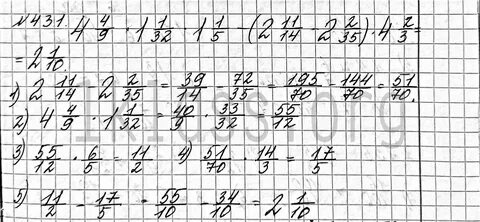 №431. 4 4/9 · 1 1/32 · 1 1/5 - (2 11/14 - 2 2/35) · 4 2/3 =
= 2 1/10.
1) 2 11/14 - 2 2/35 = 39/14 - 72/35 = 195/70 - 144/70 = 51/70.
2) 4 4/9 · 1 1/32 = 40/9 · 33/32 = 55/12
3) 55/12 · 6/5 = 11/2 4) 51/70 · 14/3 = 17/5
5) 11/2 - 17/5 = 55/10 - 34/10 = 2 1/10